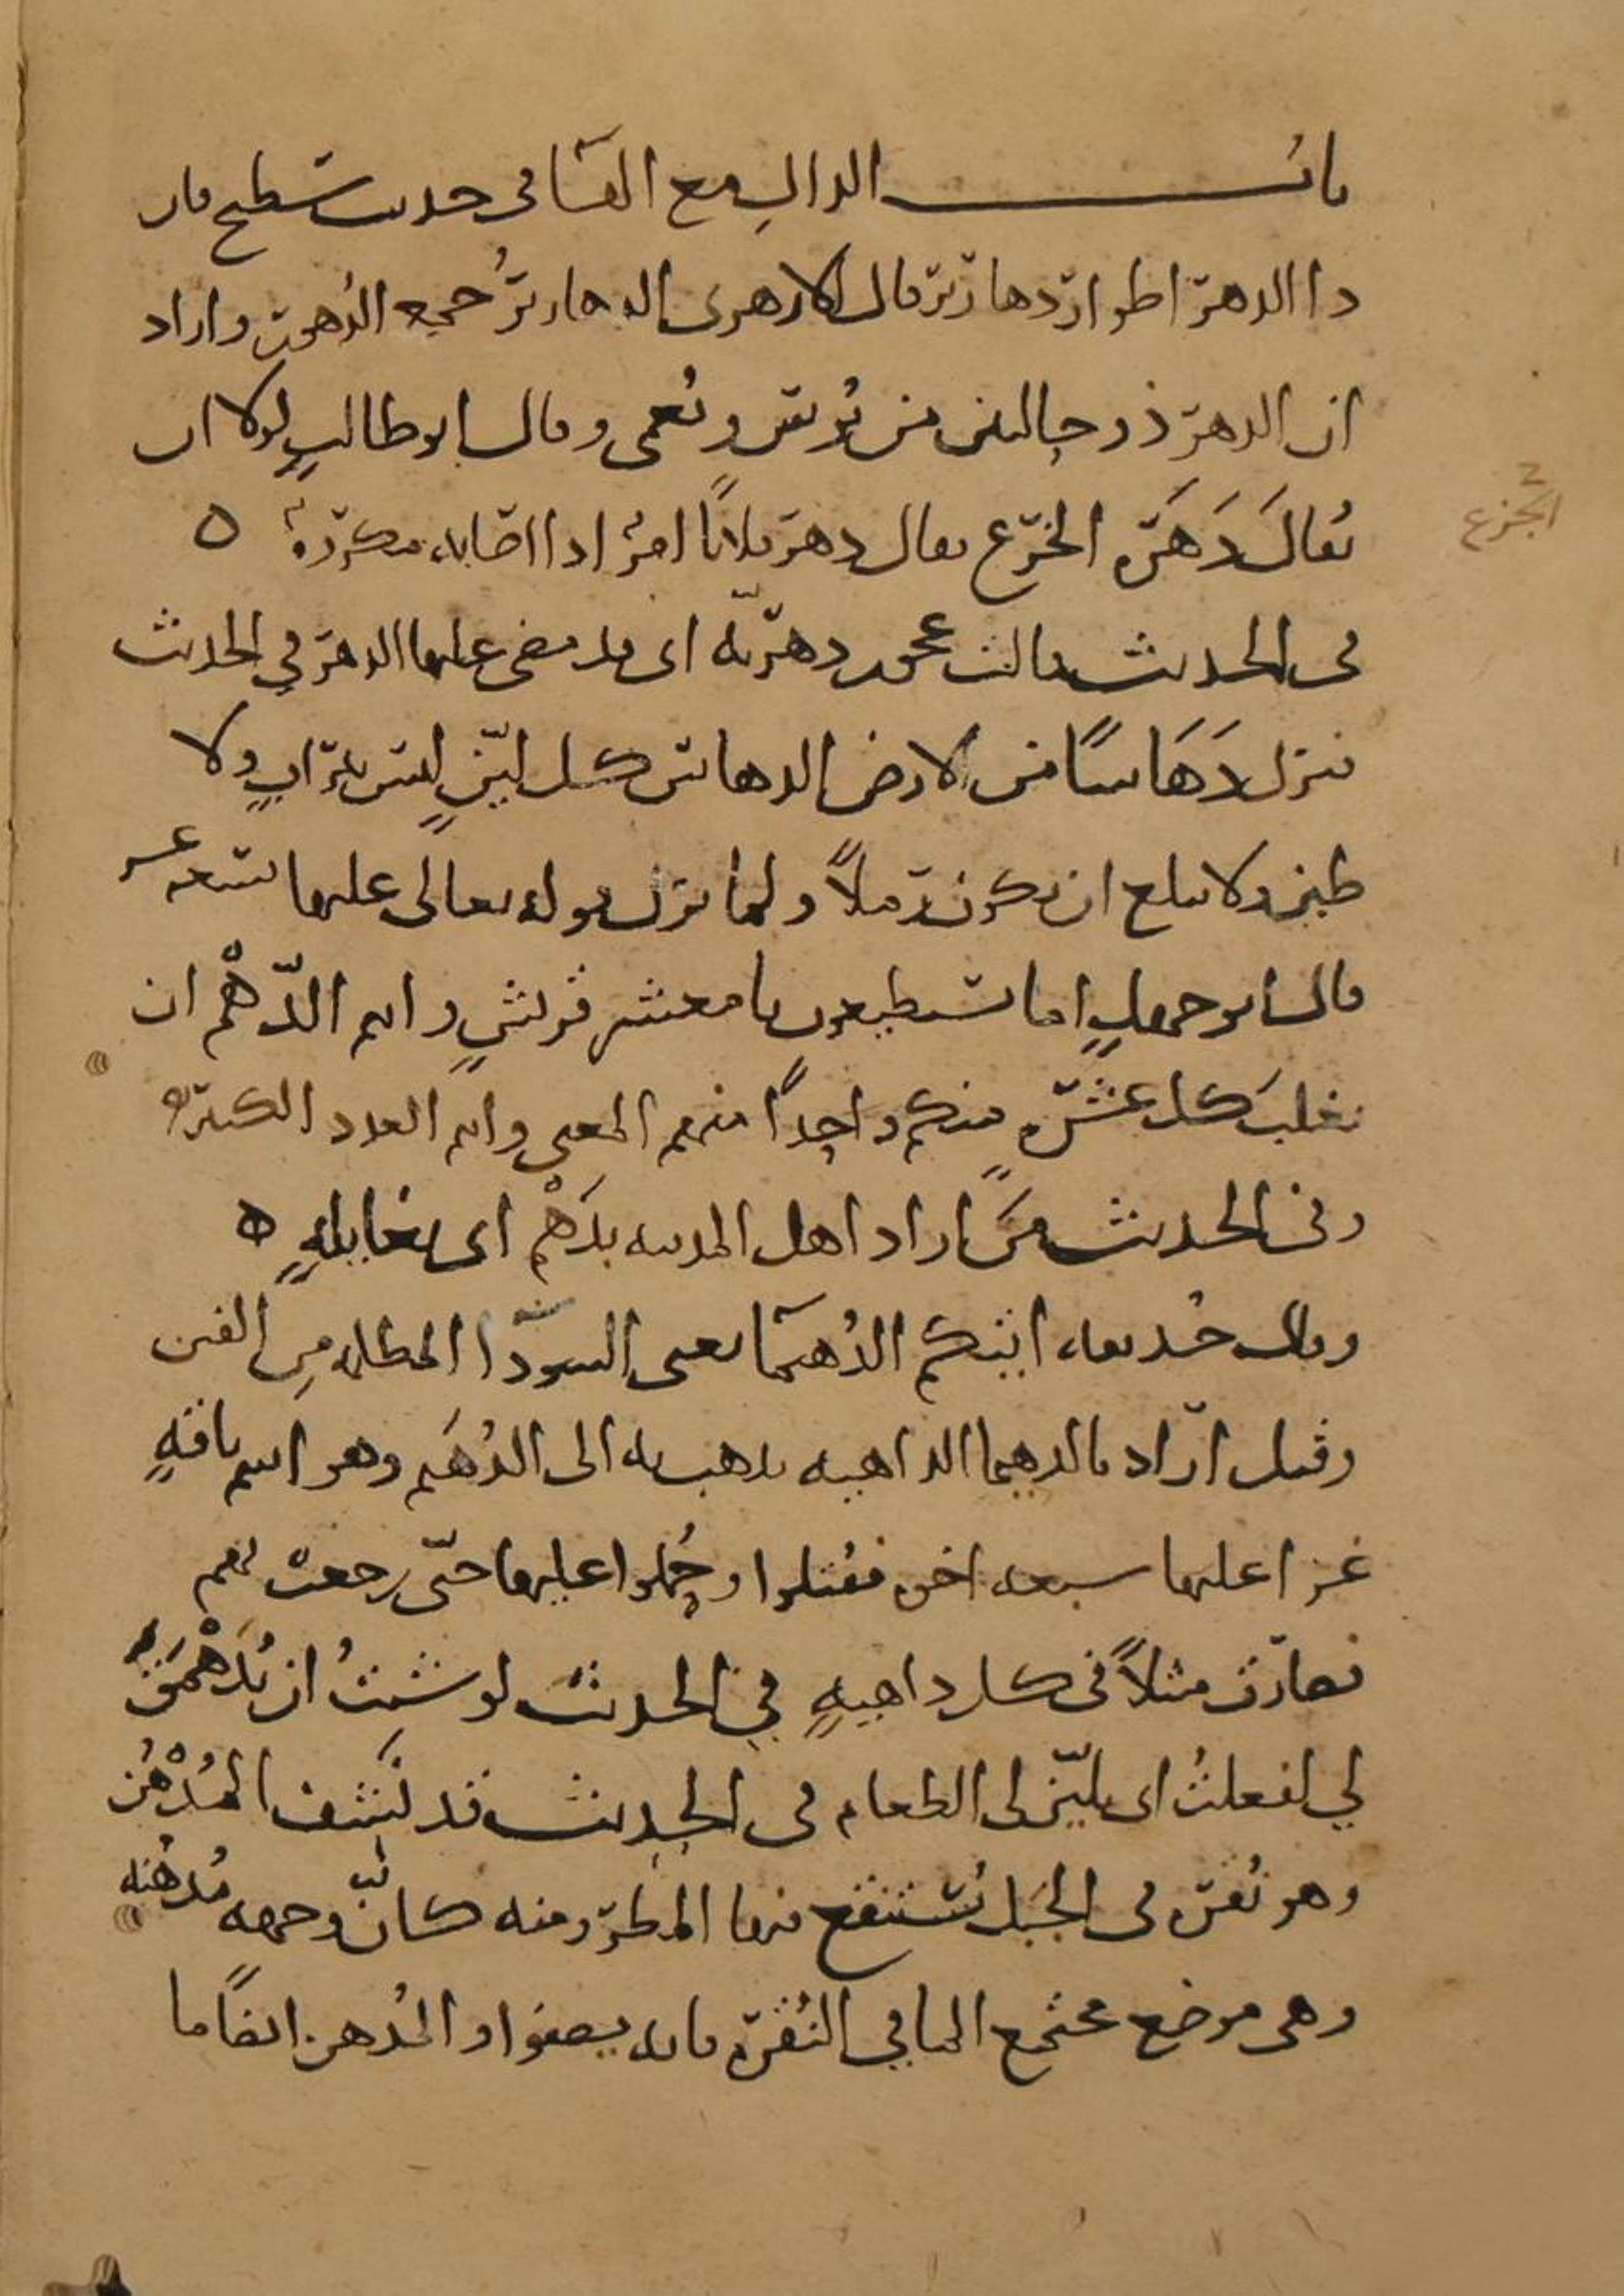 باب الدال مع الهاء في حديث سطيح فان
ذا الدهر اطوار دهارير قال الازهري الدهارير جمع الدهور واراد
ان الدهر ذو حالين من بُوس ونُعمى وقال ابو طالبٍ لولا ان
يُقالَ دَهَرَه الخَرَع يقال دهر فلانًا امرٌ اذا اصابه مكروهٌ ه
في الحديث قالت عجوز دهريّه اى قد مضى عليها الدهر في الحديث
فنزل دَهَاسًا من الارض الدهاس كل ليّنٍ ليس بترابٍ ولا
طينٍ ولا يبلغ ان يكون رملاً ولما نزل قوله تعالى عليها تسعه عشر
قال ابو جهلٍ اما تستطيعون يا معشر قريشٍ وانتم الدَّهْم ان
يغلبَ كل عشرٍه منكم واحدًا منهم المعنى وانتم العدد الكثير
وفي الحديث مَن اراد اهل المدينه بدَهْمٍ اى بغايلهٍ ه
وقال حُذيفه اتتكم الدُهَيمَا يعنى السودا المظلمه مِن الفتن
وقيل اراد بالدهيما الداهيه يذهب به الى الدُهَيم وهو اسم ناقهٍ
غزا عليها سبعه اخوه فقُتلوا وحُملوا عليها حتّى رجعت بهم
فصارت مثلاً في كل داهيهٍ في الحديث لو شئتُ ان يُدَهْمَقَ
لي لفعلتُ اى يليّن لى الطعام في الحديث قد نَشِف المُدْهُن
وهو نُقره في الجبَل يَستنقع فيها المطر ومنه كانّ وجهه مُدهُنه
وهى موضع مجتمع الما في النُقره فانه يصفوا والمُدهن ايضًا ما
الجزع